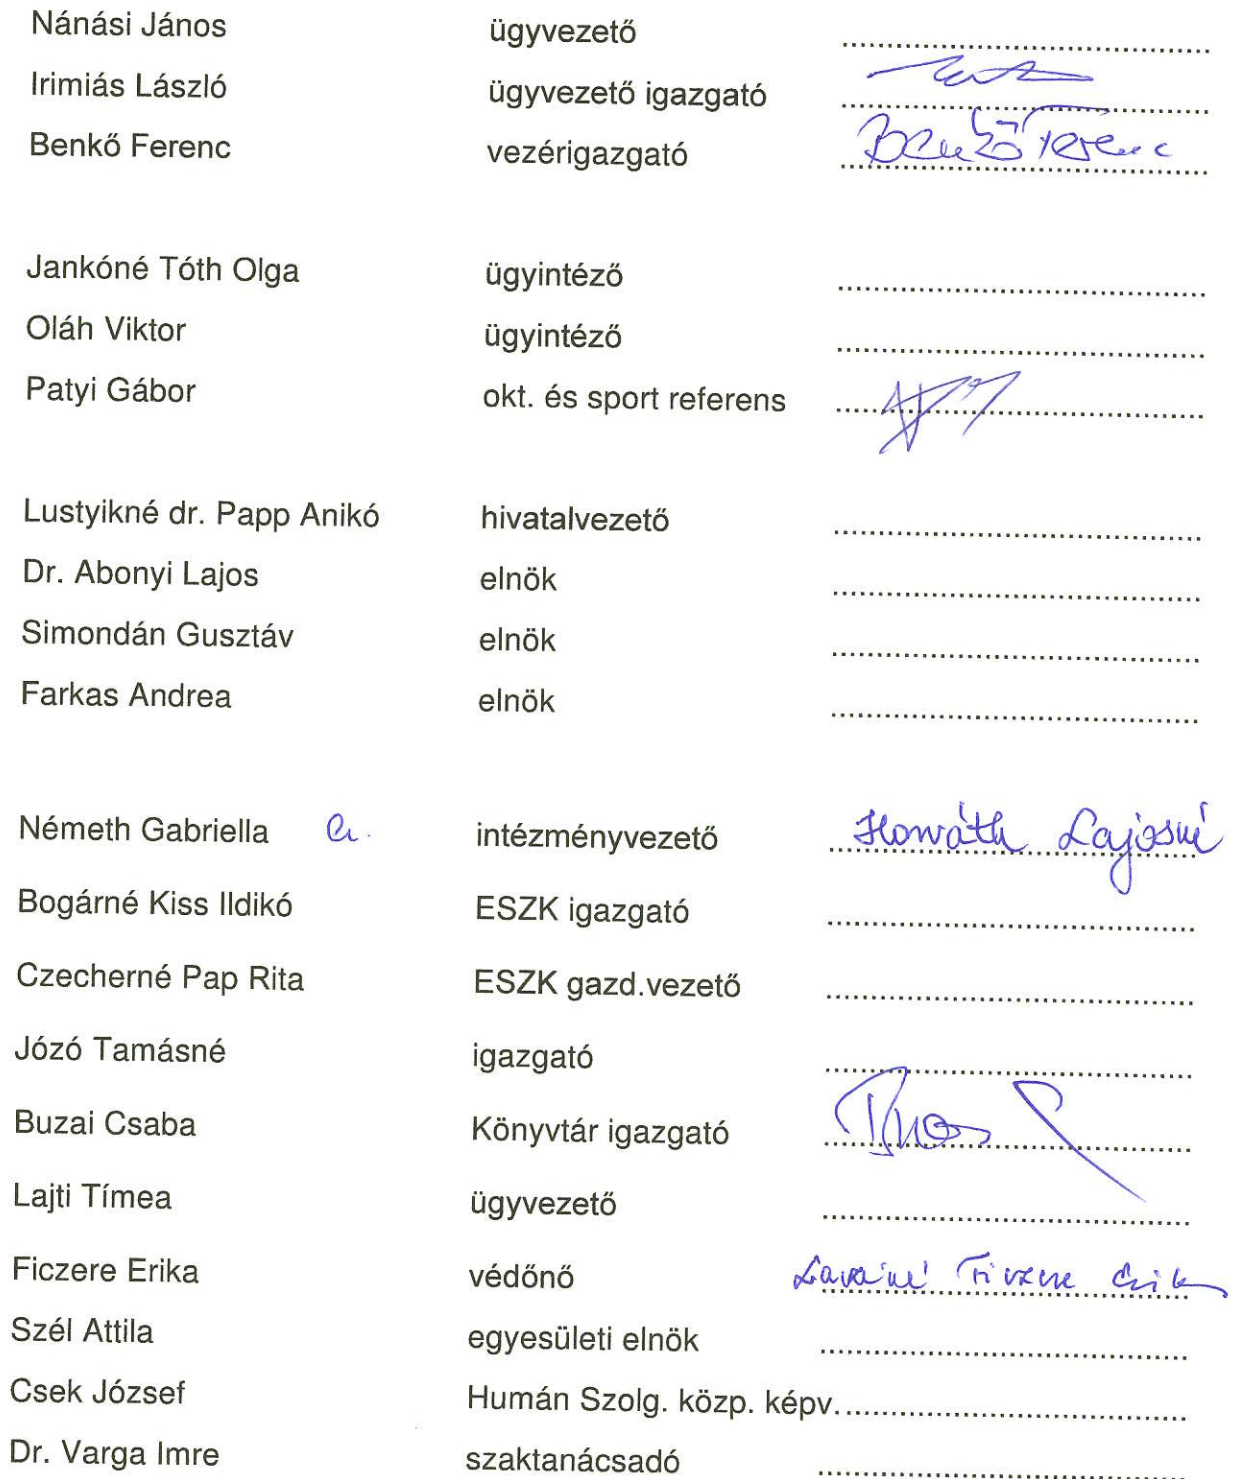 Nánási János ügyvezető ........................................
Irimiás László ügyvezető igazgató ........................................
Benkő Ferenc vezérigazgató Benkő Ferenc
Jankóné Tóth Olga ügyintéző ........................................
Oláh Viktor ügyintéző ........................................
Patyi Gábor okt. és sport referens ........................................
Lustyikné dr. Papp Anikó hivatalvezető ........................................
Dr. Abonyi Lajos elnök ........................................
Simondán Gusztáv elnök ........................................
Farkas Andrea elnök ........................................
Németh Gabriella intézményvezető Horváth Lajosné
Bogárné Kiss Ildikó ESZK igazgató ........................................
Czecherné Pap Rita ESZK gazd.vezető ........................................
Józó Tamásné igazgató ........................................
Buzai Csaba Könyvtár igazgató ........................................
Lajti Tímea ügyvezető ........................................
Ficzere Erika védőnő Ficzere Erika
Szél Attila egyesületi elnök ........................................
Csek József Humán Szolg. közp. képv. ........................................
Dr. Varga Imre szaktanácsadó ........................................